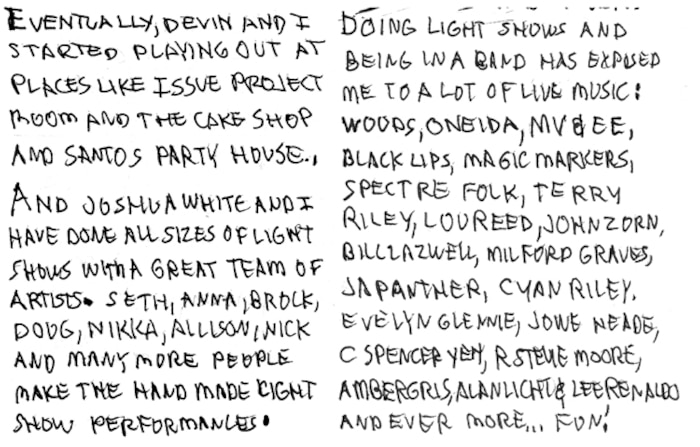 EVENTUALLY, DEVIN AND I
STARTED PLAYING OUT AT
PLACES LIKE ISSUE PROJECT
ROOM AND THE CAKE SHOP
AND SANTOS PARTY HOUSE..
AND JOSHUA WHITE AND I
HAVE DONE ALL SIZES OF LIGHT
SHOWS WITH A GREAT TEAM OF
ARTISTS. SETH, ANNA, BROCK,
DOUG, NIKKA, ALLISON, NICK
AND MANY MORE PEOPLE
MAKE THE HAND MADE LIGHT
SHOW PERFORMANCES.
DOING LIGHT SHOWS AND
BEING IN A BAND HAS EXPOSED
ME TO A LOT OF LIVE MUSIC:
WOODS, ONEIDA, MV&EE,
BLACK LIPS, MAGIC MARKERS,
SPECTRE FOLK, TERRY
RILEY, LOU REED, JOHN ZORN,
BILL LAZWELL, MILFORD GRAVES,
JAPANTHER, CYAN RILEY.
EVELYN GLENNIE, JOWE HEADE,
C SPENCER YEH, R STEVIE MOORE,
AMBERGRIS, ALAN LICHT & LEE RENALDO
AND EVER MORE... FUN!